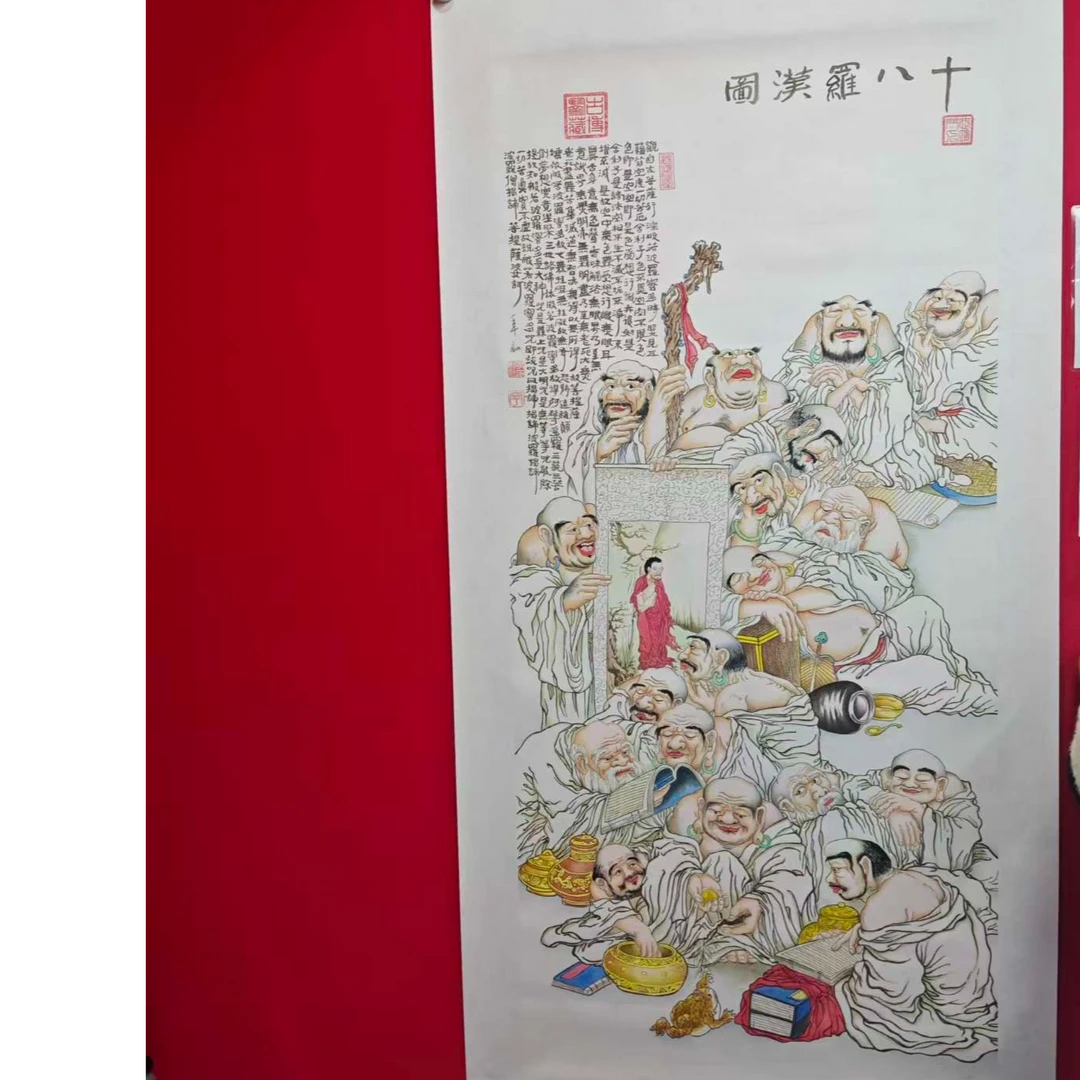 十八羅漢圖
觀自在菩薩行深般若波羅蜜多時照見五
蘊皆空度一切苦厄舍利子色不異空空不異色
色即是空空即是色受想行識亦復如是
舍利子是諸法空相不生不滅不垢不淨不
增不減是故空中無色無受想行識無眼耳
鼻舌身意無色聲香味觸法無眼界乃至無
意識界無無明亦無無明盡乃至無老死亦無
老死盡無苦集滅道無智亦無得以無所得故菩提薩
埵依般若波羅蜜多故心無罣礙無罣礙故無有恐怖遠離顛
倒夢想究竟涅槃三世諸佛依般若波羅蜜多故得阿耨多羅三藐三菩
提故知般若波羅蜜多是大神咒是大明咒是無上咒是無等等咒能除
一切苦真實不虛故說般若波羅蜜多咒即說咒曰揭諦揭諦波羅揭諦
波羅僧揭諦菩提薩婆訶